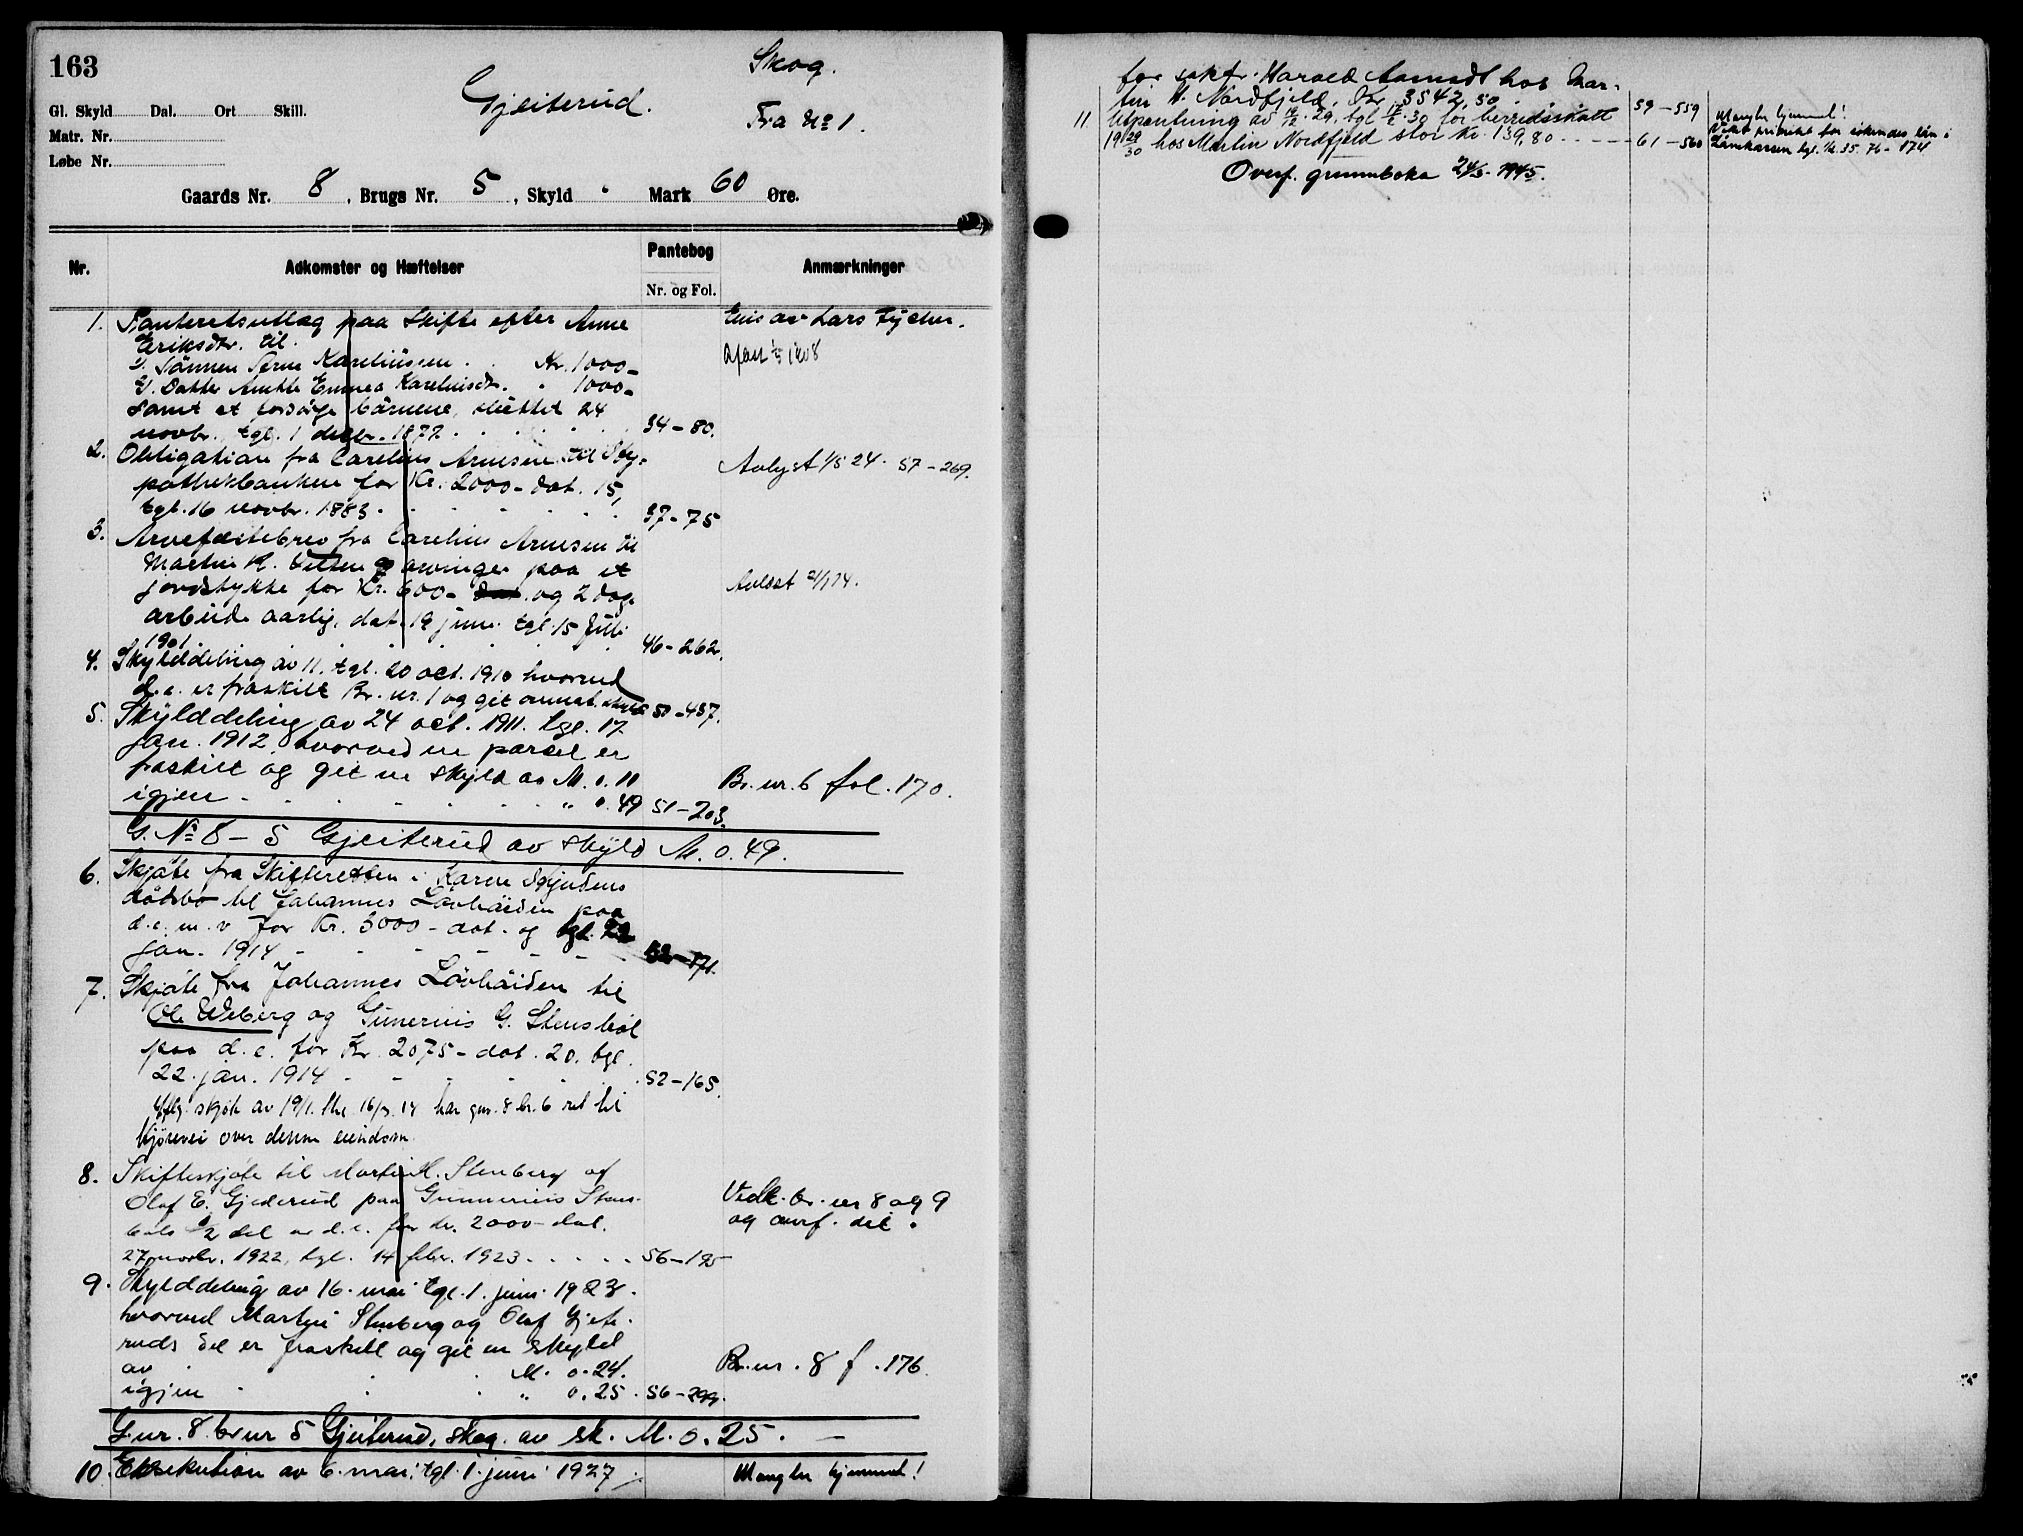 163
Skog.
Gjeiterud.
Fra No 1.
Gl. Skyld Dal. Ort Skill.
Matr. Nr.
Løbe Nr.
Gaards Nr. 8, Brugs Nr. 5, Skyld " Mark 60 Øre.
Nr. Adkomster og Hæftelser Pantebog Anmærkninger
Nr. og Fol.
1. Panteretsutlæg paa Skifte efter Anne
Eriksdtr. til
1/ Sønnen Arne Kareliussen Kr. 1000-
2/ Datter Emma Kareliusdtr. " 1000-
samt at forsørge børnene, sluttet 24
novbr. tgl. 1 decbr. 1877. 34-80.
2. Obligation fra Carelius Arnesen til Hy-
pothekbanken for Kr. 2000- dat. 15,
tgl. 16 novbr. 1883. 37-75
Avlyst 1/5 24. 57-269.
3. Arvefæstebrev fra Carelius Arnesen til
Martin K. og arvinger paa et
jordstykke for Kr. 600- og 2 dags
arbeide aarlig, dat. 19 juni tgl. 15 juli
1901. 46-262.
Avløst
4. Skylddeling av 11. tgl. 20 oct. 1910 hvorved
d.e. er fraskilt Br. nr. 1 og git annet. skyld 50-437.
5. Skylddeling av 24 oct. 1911. tgl. 17
jan. 1912 hvorved en parcel er
fraskilt og git en skyld av M. 0.11
igjen " 0.49 51-203.
Br. nr. 6 fol. 170.
G. No 8-5 Gjeiterud av skyld M. 0.49.
6. Skjøte fra Skifteretten i Karen
dødsbo til Johannes Løvhaiden paa
d.e. m.v for Kr. 3000- dat. og tgl. 22
jan. 1914 52-171.
7. Skjøte fra Johannes Løvhaiden til
Ole Weberg og Gunerius G. Stensbøl
paa d.e. for Kr. 2075- dat. 20. tgl.
22. jan. 1914 52-165.
Iflg. skjøte av 19/1. thl. 16/3. 14 har gnr. 8 br. 6 ret til
kjørevei over denne eiendom.
8. Skifteskjøte til Martin M. Stenberg og
Olaf E. Gjederud paa Gunnerius Stens-
bøls 1/2 del av d.e. for kr. 2000- dat.
27 novbr. 1922, tgl. 14 febr. 1923 56-195
Vedk. br. nr 8 og 9
og overf. dit.
9. Skylddeling av 16. mai tgl. 1. juni 1923.
hvorved Martin Stenberg og Olaf Gjete-
ruds del er fraskilt og git en skyld
av M. 0.24.
igjen " 0.25. 56-299.
Br. nr. 8 f. 176.
G.nr. 8 br nr 5 Gjeiterud, skog. av sk. M. 0.25.
10. Exekution av 6. mai, tgl. 1. juni 1927
Mangler hjemmel!
for sakfr. Harald hos Mar-
tin H. Nordfjeld, Kr. 3542,50 59-559
Mangler hjemmel!
11. Utpantning av tgl for herredsskatt
19 29/30 hos Martin Nordfjeld stor kr. 139,80 61-560
Viker prioritet for lån i
Lånekassen tgl. 35. 76-174
Overf. grunnboka 24/5-1945.